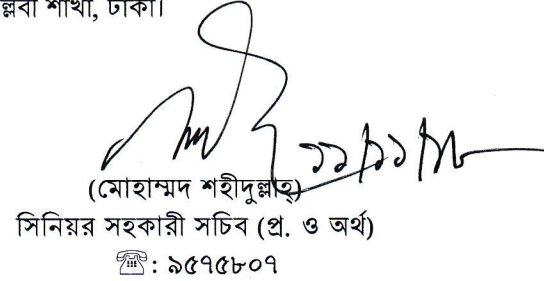 শাখা, ঢাকা।
(মোহাম্মদ শহীদুল্লাহ্)
সিনিয়র সহকারী সচিব (প্র. ও অর্থ)
☎: ৯৫৭৫৮০৭